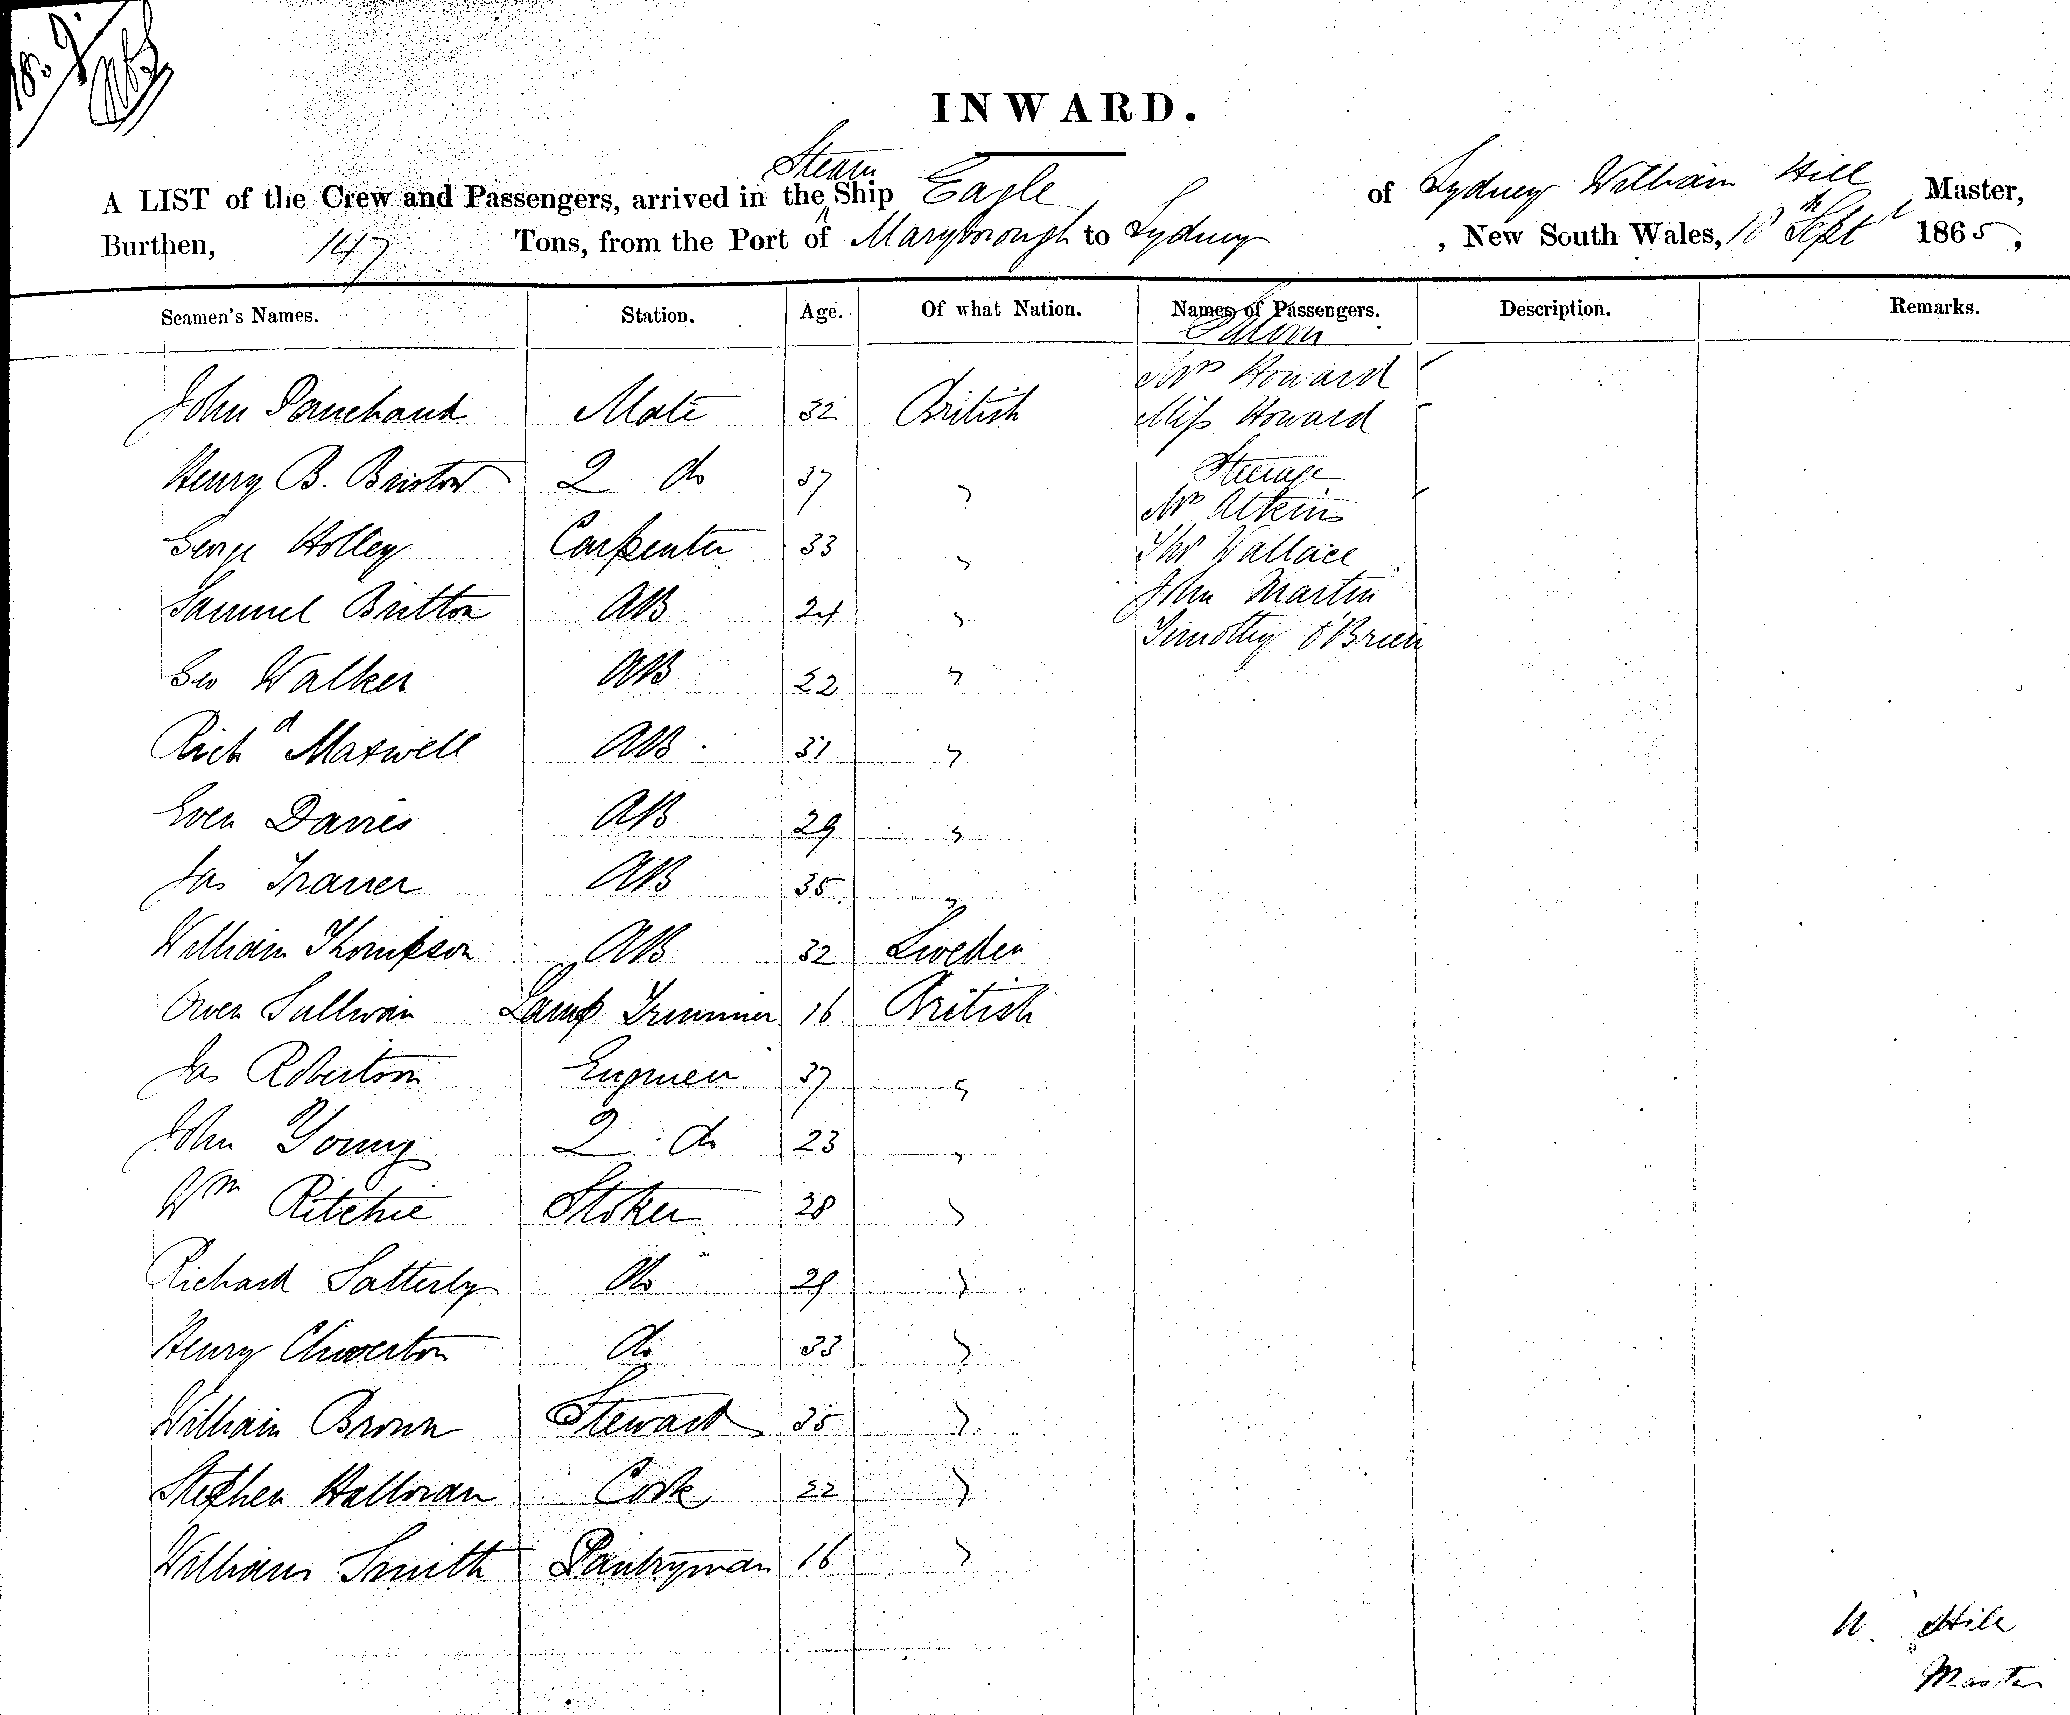 INWARD.
A LIST of the Crew and Passengers, arrived in the Steam Ship Eagle of Sydney William Hill Master,
Burthen, 147 Tons, from the Port of Maryborough to Sydney, New South Wales, 18th Sept 1865,
Seamen's Names. Station. Age. Of what Nation. Names of Passengers. Description. Remarks.
Saloon
Mrs Howard
John Mate 32 British Miss Howard
Steerage
Henry B. Bristow 2 do 37 "
Mrs Atkins
George Holley Carpenter 33 " Thos Wallace
John Martin
Samuel Britton AB 24 "
Timothy O'Brien
Geo Walker AB 22 "
Richd Maxwell AB 31 "
Even Davies AB 29 "
Jas AB 35 "
William Thompson AB 32 Sweden
Owen Sullivan Lamp Trimmer 16 British
Jas Robertson Engineer 37 "
John Young 2 do 23 "
Wm Ritchie Stoker 28 "
Richard Satterly do 29 "
Henry Chiverton do 33 "
William Brown Steward 35 "
Stephen Halloran Cook 22 "
William Smith Pantryman 16 "
W. Hill
Master